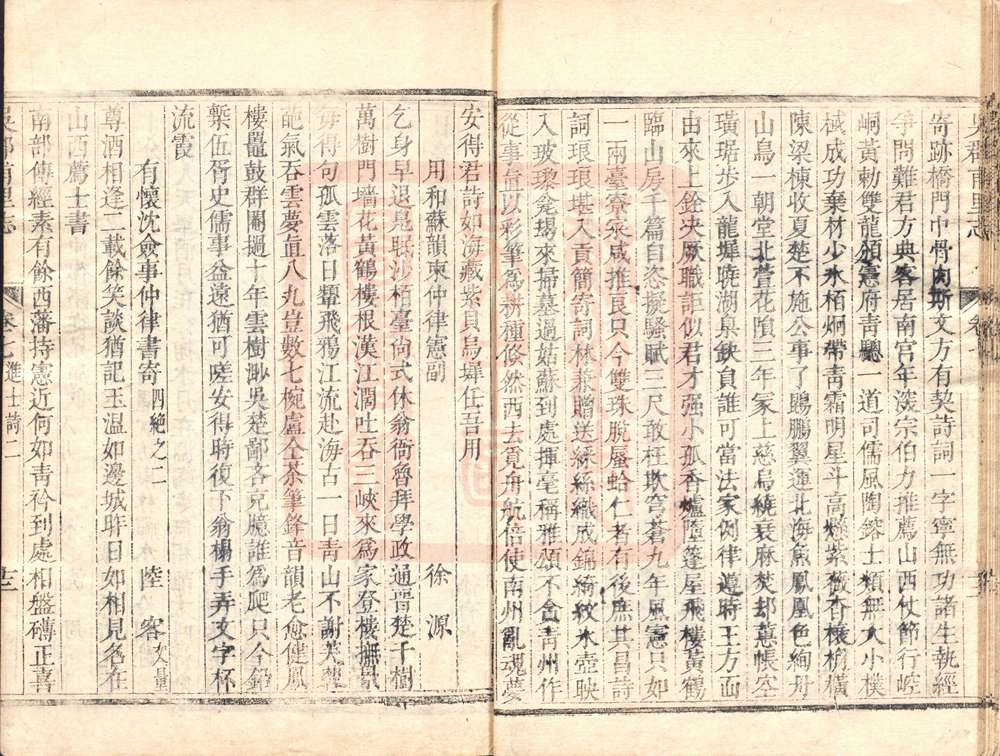 吳郡甫里志 卷七
寄跡橋門中骨肉斯文方有契詩詞一字寧無功諸生執經
爭問難君方典客居南宮年深宗伯力推薦山西仗節行崆
峒黃勅雙龍頒憲府靑驄一道司儒風陶鎔士類無大小樸
棫成功棄材少氷栢烱帶靑霜明星斗高懸紫薇杳榱桷橫
陳梁棟收夏楚不施公事了鵾鵬翼運北海魚鳳凰色絢丹
山鳥一朝堂北萱花隕三年冢上慈烏繞衰麻焚却蕙帳空
璜琚步入龍墀曉湖臬欽負誰可當法家例律遵時王方面
由來上銓决厥職詎似君才强小孤香爐墮蓬屋飛樓黃鶴
臨山房千篇自恣擬騷賦三尺敢枉欺穹蒼九年風憲只如
一兩臺寮寀咸推良只今雙珠脫蜃蛤仁者有後庶其昌詩
詞琅琅堪入貢簡寄詞林兼贈送綵絲織成錦綺紋氷壺映
入玻瓈瓮瑒來掃墓過姑蘇到處揮毫稱雅頌不貪靑州作
從事直以彩筆爲耕種悠然西去覓舟航倍使南州亂魂夢
安得君詩如海藏紫貝烏墀任吾用
用和蘇韻柬仲律憲副 徐源
乞身早退晁眠沙栢臺尙式休翁衙魯拜學政通晋楚千樹
萬樹門墻花黃鶴樓根漢江濶吐吞三峽來爲家登樓撫瓾
每得句孤雲落日翻飛鴉江流赴海古一日靑山不謝芙蓉
葩氣吞雲夢直八九豈數七椀盧仝茶筆鋒音韻老愈健鳳
樓鼉鼓群闘撾十年雲樹渺吳楚鄙吝克臆誰爲爬只今鉛
槧伍胥史儒事益遠猶可嗟安得時復下翁榻手弄文字杯
流霞
有懷沈僉事仲律書寄 四絕之二 陸容 文量
尊酒相逢二載餘笑談猶記玉溫如邊城昨日如相見名在
山西薦士書
南部傳經素有餘西藩持憲近何如靑衿到處相盤礴正喜
吳郡甫里志 卷七 進士詩二 十三